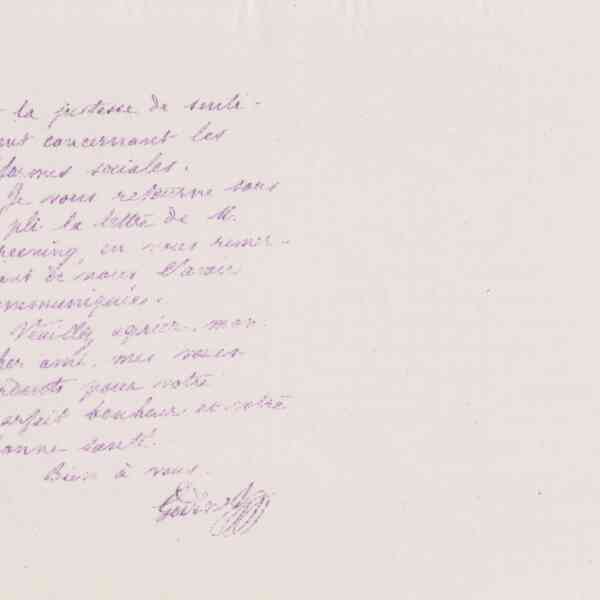 la justesse de senti-
ment concernant les
formes sociales.
Je vous retourne sous
pli la lettre de M.
en vous remer-
ant de nous l'avoir
ommuniquée.
Veuillez agréer, mon
her ami, mes voeux
ardents pour votre
arfait bonheur et votre
bonne santé.
Bien à vous.
Godin